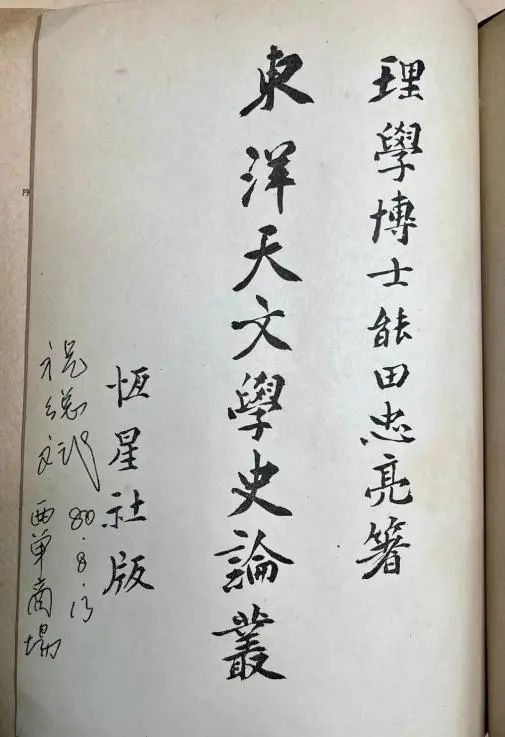 理學博士能田忠亮著
東洋天文學史論叢
恆星社版
80.8.13
西单商場